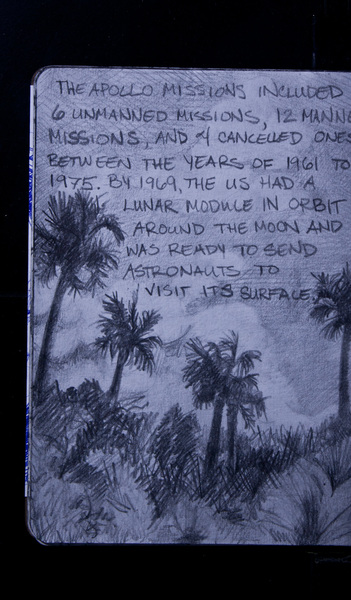 THE APOLLO MISSIONS INCLUDED
6 UNMANNED MISSIONS, 12 MANNE
MISSIONS, AND 4 CANCELLED ONES
BETWEEN THE YEARS OF 1961 TO
1975. BY 1969, THE US HAD A
LUNAR MODULE IN ORBIT
AROUND THE MOON AND
WAS READY TO SEND
ASTRONAUTS TO
VISIT ITS SURFACE.